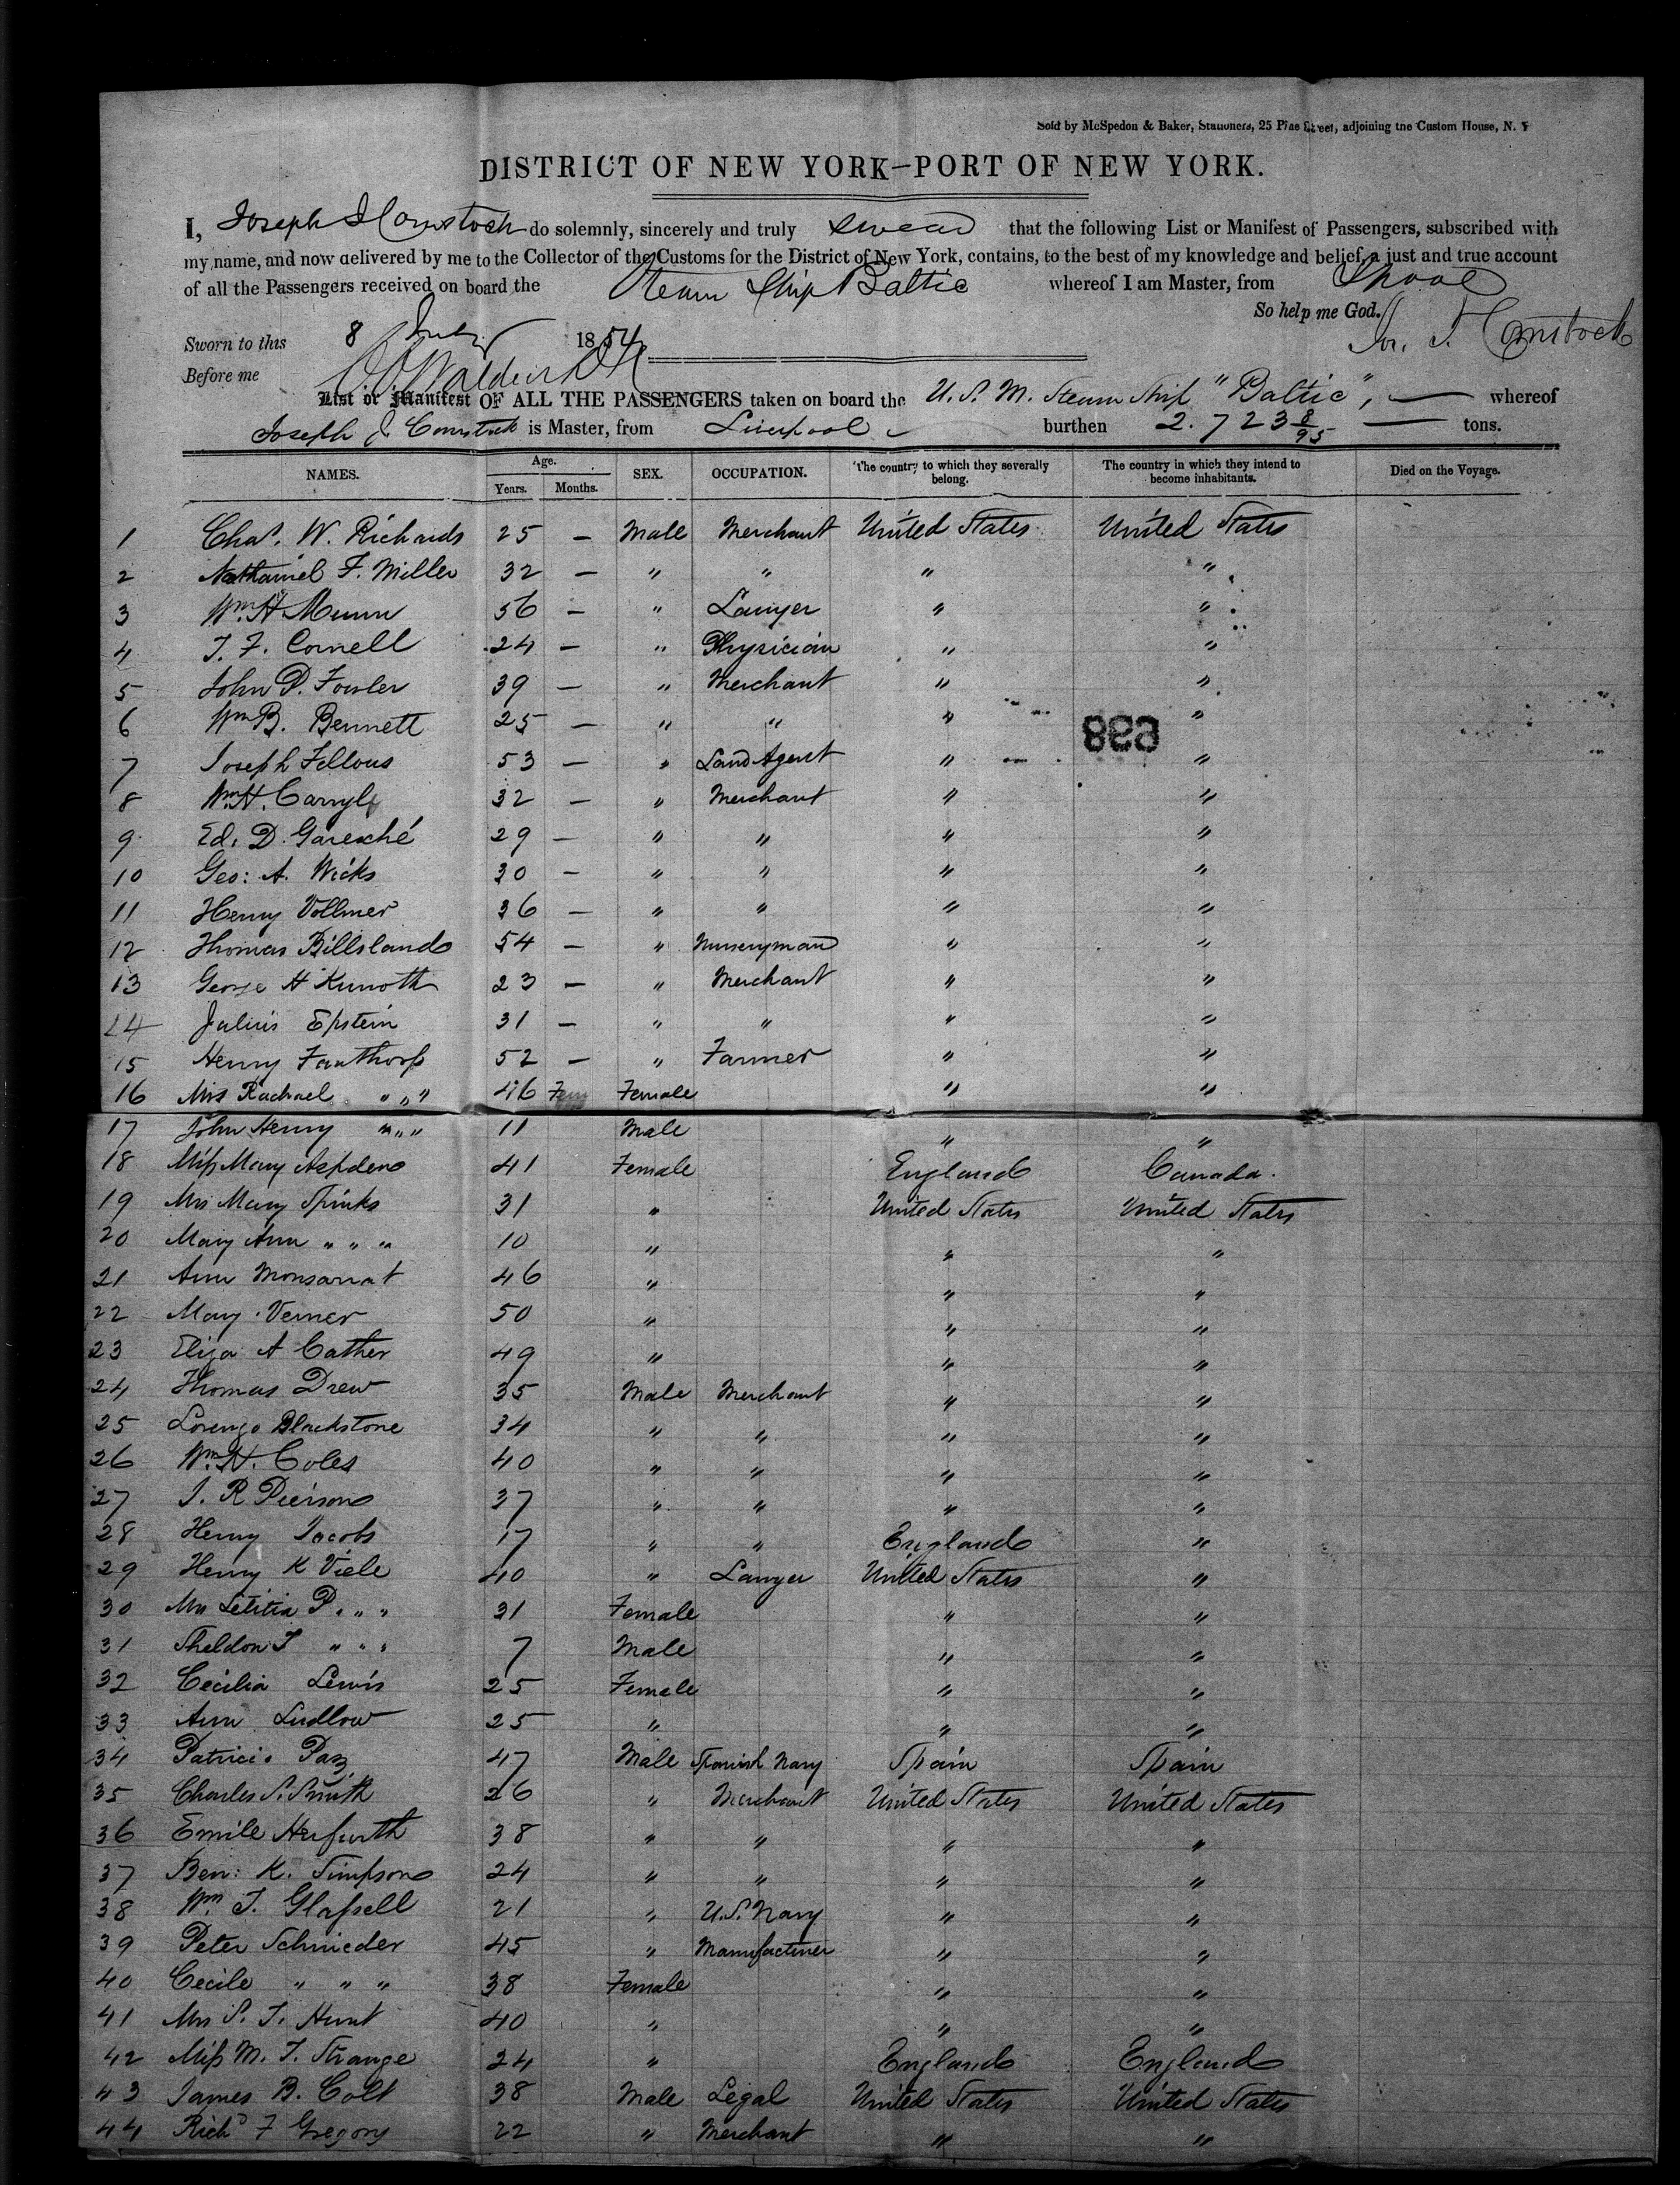 Sold by McSpedon & Baker, Stationers, 25 Pine Street, adjoining the Custom House, N. Y
DISTRICT OF NEW YORK—PORT OF NEW YORK.
I, Joseph J Comstock do solemnly, sincerely and truly swear that the following List or Manifest of Passengers, subscribed with
my name, and now delivered by me to the Collector of the Customs for the District of New York, contains, to the best of my knowledge and belief, a just and true account
of all the Passengers received on board the Steam Ship Baltic whereof I am Master, from Lpool
So help me God.
Sworn to this 8 July 1854 Jos. J. Comstock
Before me
List or Manifest OF ALL THE PASSENGERS taken on board the U.S.M. Steam Ship "Baltic", — whereof
Joseph J. Comstock is Master, from Liverpool burthen 2.723 8/95 — tons.
NAMES. Age. Years. Months. SEX. OCCUPATION. The country to which they severally belong. The country in which they intend to become inhabitants. Died on the Voyage.
1 Chas. W. Richards 25 — Male Merchant United States United States
2 Nathaniel F. Miller 32 — " " " "
3 Wm. H Munn 56 — " Lawyer " "
4 T. F. Cornell 24 — " Physician " "
5 John P. Fowler 39 — " Merchant " "
6 Wm B. Bennett 25 — " " " "
7 Joseph Fellows 53 — " Land Agent " "
8 Wm. H. Carryl 32 — " Merchant " "
9 Ed. D. Garesché 29 — " " " "
10 Geo: A. Wicks 30 — " " " "
11 Henry Vollmer 36 — " " " "
12 Thomas Billsland 54 — " Nurseryman " "
13 George H Kunoth 23 — " Merchant " "
14 Julius Epstein 31 — " " " "
15 Henry Fanthorp 52 — " Farmer " "
16 Mrs Rachael " " " 46 Female " "
17 John Henry " " " 11 Male " "
18 Miss Mary Aspden 41 Female England Canada
19 Mrs Mary Spinks 31 " United States United States
20 Mary Ann " " " 10 " " "
21 Ann Monsarrat 46 " " "
22 Mary Verner 50 " " "
23 Eliza A Cather 49 " " "
24 Thomas Drew 35 Male Merchant " "
25 Lorenzo Blackstone 34 " " " "
26 Wm. H. Coles 40 " " " "
27 J. R Pierson 37 " " " "
28 Henry Jacobs 17 " " England "
29 Henry K Viele 40 " Lawyer United States "
30 Mrs Letitia P. " " 31 Female " "
31 Sheldon T " " " 7 Male " "
32 Cecilia Lewis 25 Female " "
33 Ann Ludlow 25 " " "
34 Patricio Paz 47 Male Spanish Navy Spain Spain
35 Charles S. Smith 26 " Merchant United States United States
36 Emile Herfurth 38 " " " "
37 Ben: K. Simpson 24 " " " "
38 Wm. T. Glassell 21 " U.S. Navy " "
39 Peter Schnieder 45 " Manufacturer " "
40 Cecile " " " 38 Female " "
41 Mrs S. T. Hunt 40 " " "
42 Miss M. T. Strange 24 " England England
43 James B. Colt 38 Male Legal United States United States
44 Richd F Gregory 22 " Merchant " "